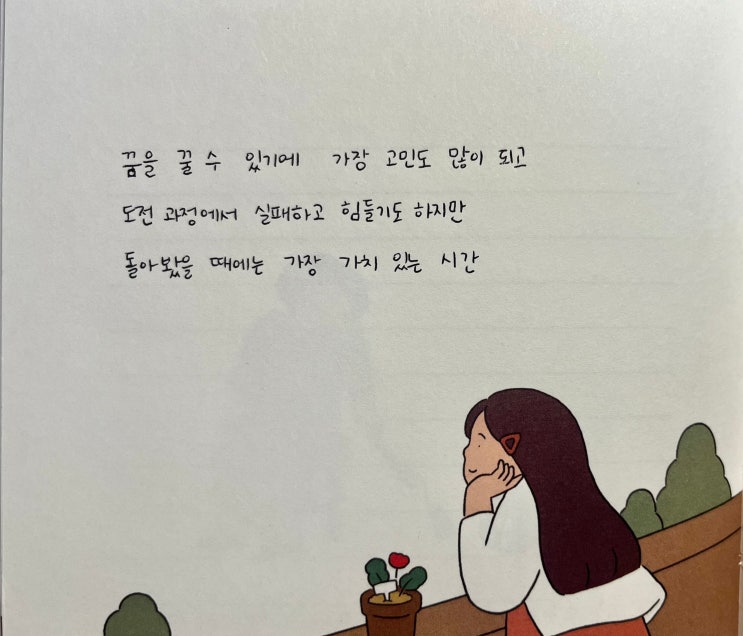 꿈을 꿀 수 있기에 가장 고민도 많이 되고
도전 과정에서 실패하고 힘들기도 하지만
돌아봤을 때에는 가장 가치 있는 시간